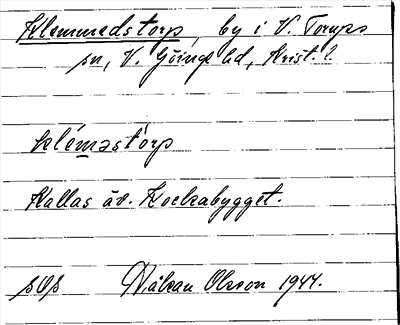 Klemmedstorp, by i V. Torups
sn, V. Göinge hd, Krist. l.
kleməstorp
Kallas äv. Kockabygget.
Håkan Olsson 1944.